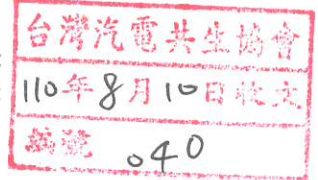 台灣汽電共生協會
110年8月10日收文
編號 040